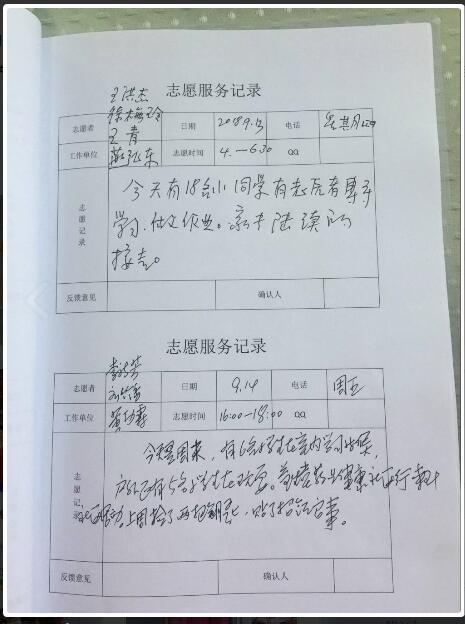 志愿服务记录
王洪杰
徐梅玲
志愿者 王青 日期 2018.9.13 电话 星期四
工作单位 志愿时间 4.—6.30 QQ
志愿记录
今天有18名小同学有志愿者
学习、做作业。家长陆续的
接走。
反馈意见 确认人
志愿服务记录
志愿者 日期 9.14 电话 周五
工作单位 志愿时间 16:00—18:00 QQ
志愿记录
今天是周末，有6名学生在室内学习
户外还有5名学生在玩耍。
活动。上周拾了两把钥匙，贴了招领启事。
反馈意见 确认人